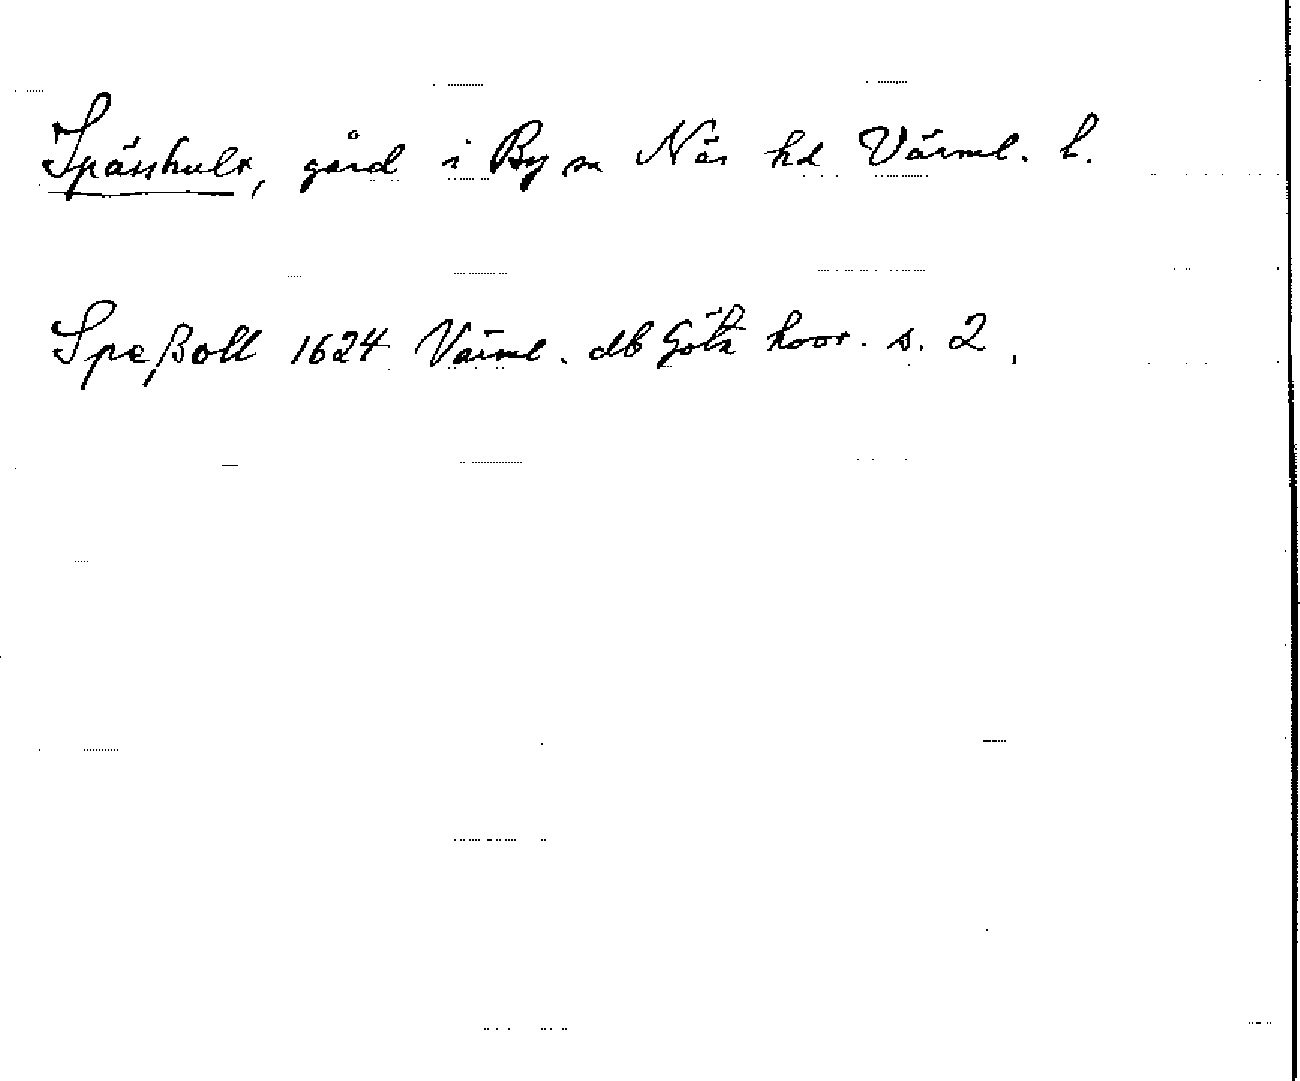 Spässhult, gård i By sn Näs hd Värml. l.
Speßoll 1624 Värml. db Göta hovr. s. 2.